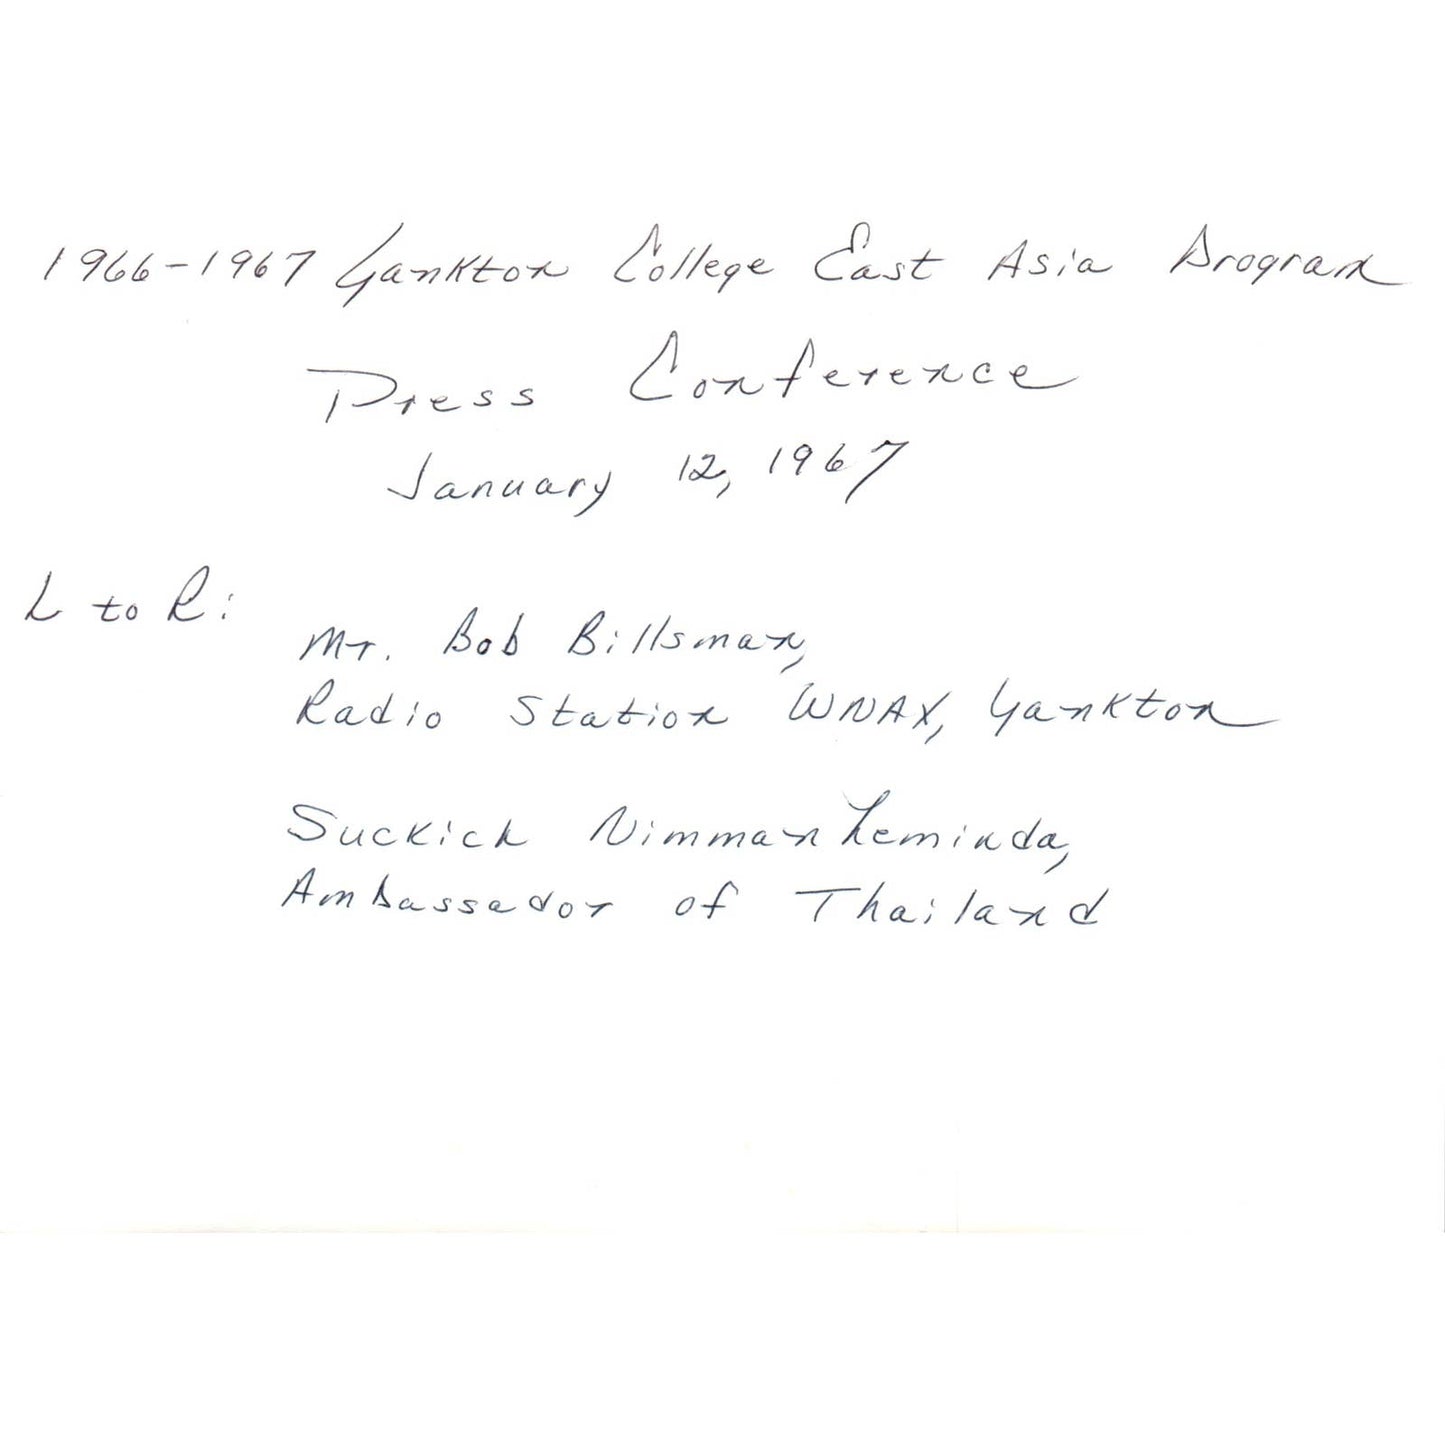 1966-1967 Yankton College East Asia Program
Press Conference
January 12, 1967
L to R:
Mr. Bob Billsman,
Radio Station WNAX, Yankton
Suckich Nimmanheminda,
Ambassador of Thailand